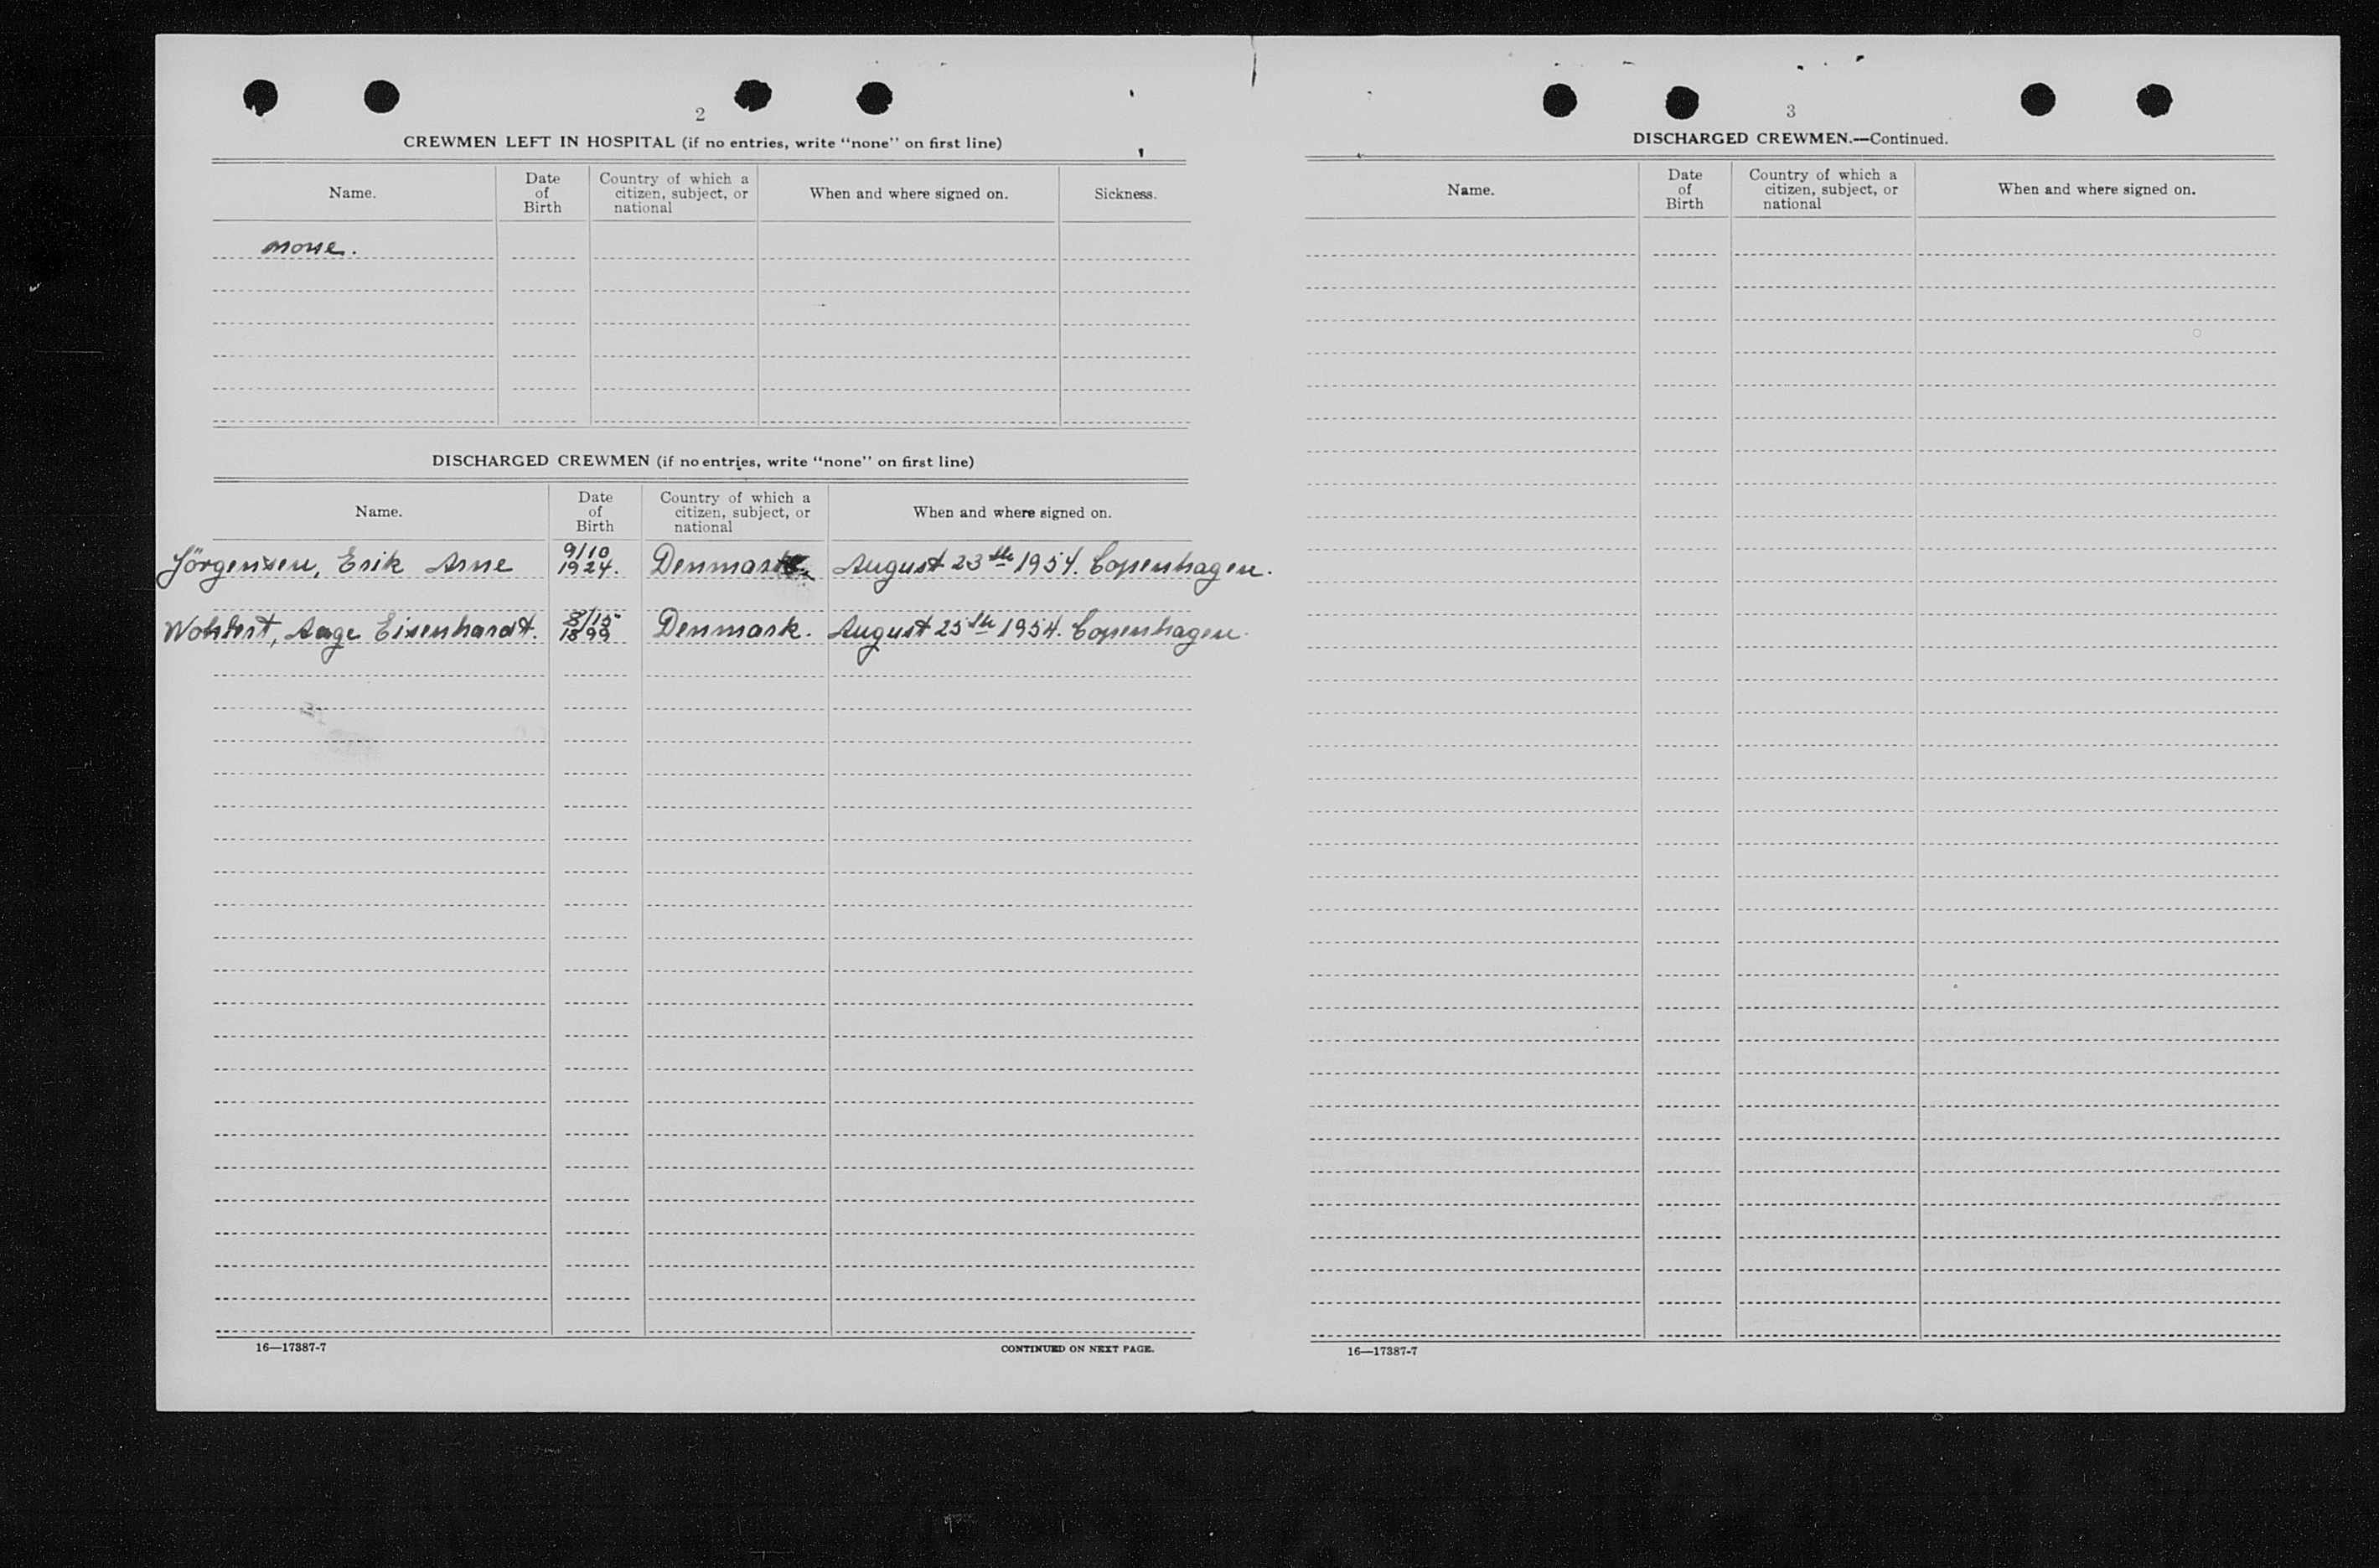 2
CREWMEN LEFT IN HOSPITAL (if no entries, write "none" on first line)
Name. Date of Birth Country of which a citizen, subject, or national When and where signed on. Sickness.
none.
DISCHARGED CREWMEN (if no entries, write "none" on first line)
Name. Date of Birth Country of which a citizen, subject, or national When and where signed on.
Jörgensen, Erik Arne 9/10 1924. Denmark. August 23th 1954. Copenhagen.
Aage Eisenhardt. 8/15 1899 Denmark. August 25th 1954. Copenhagen.
16—17387-7 CONTINUED ON NEXT PAGE.
3
DISCHARGED CREWMEN.—Continued.
Name. Date of Birth Country of which a citizen, subject, or national When and where signed on.
16—17387-7